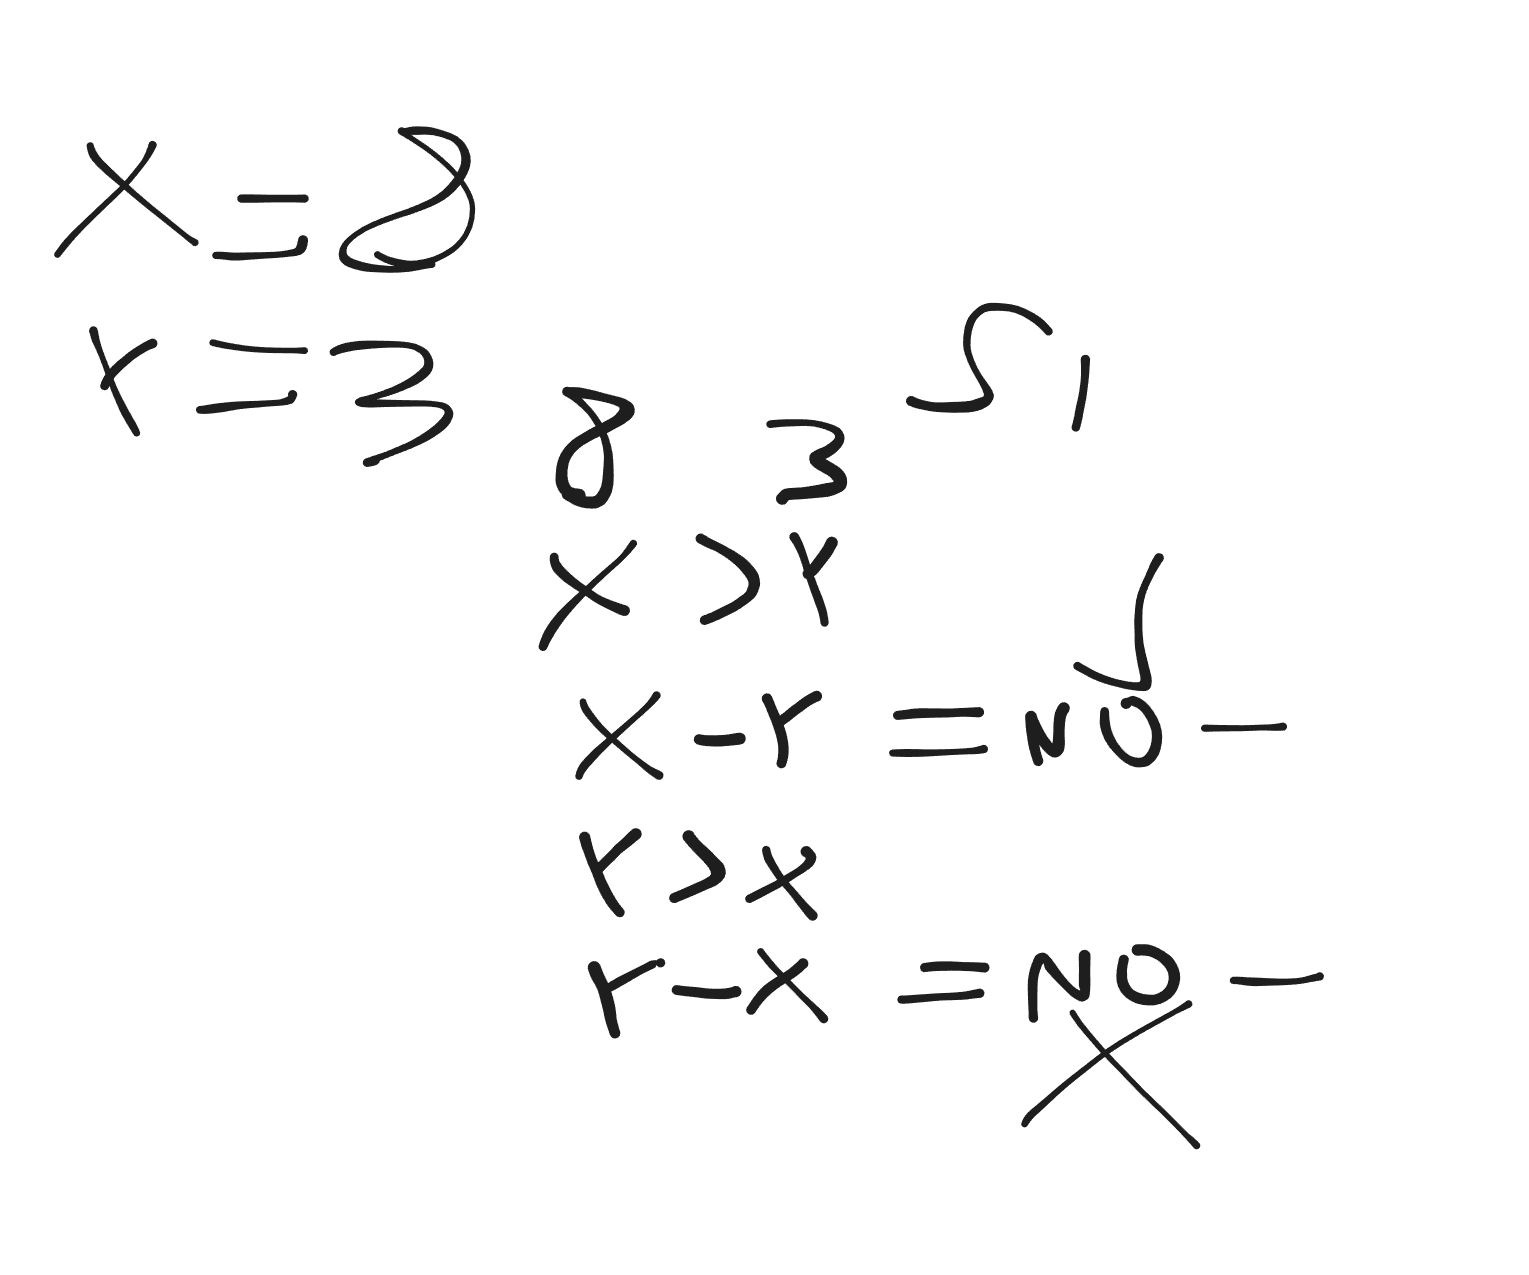 X = 8
Y = 3
SI
8 3
X > Y
X - Y = NO -
Y > X
Y - X = NO -